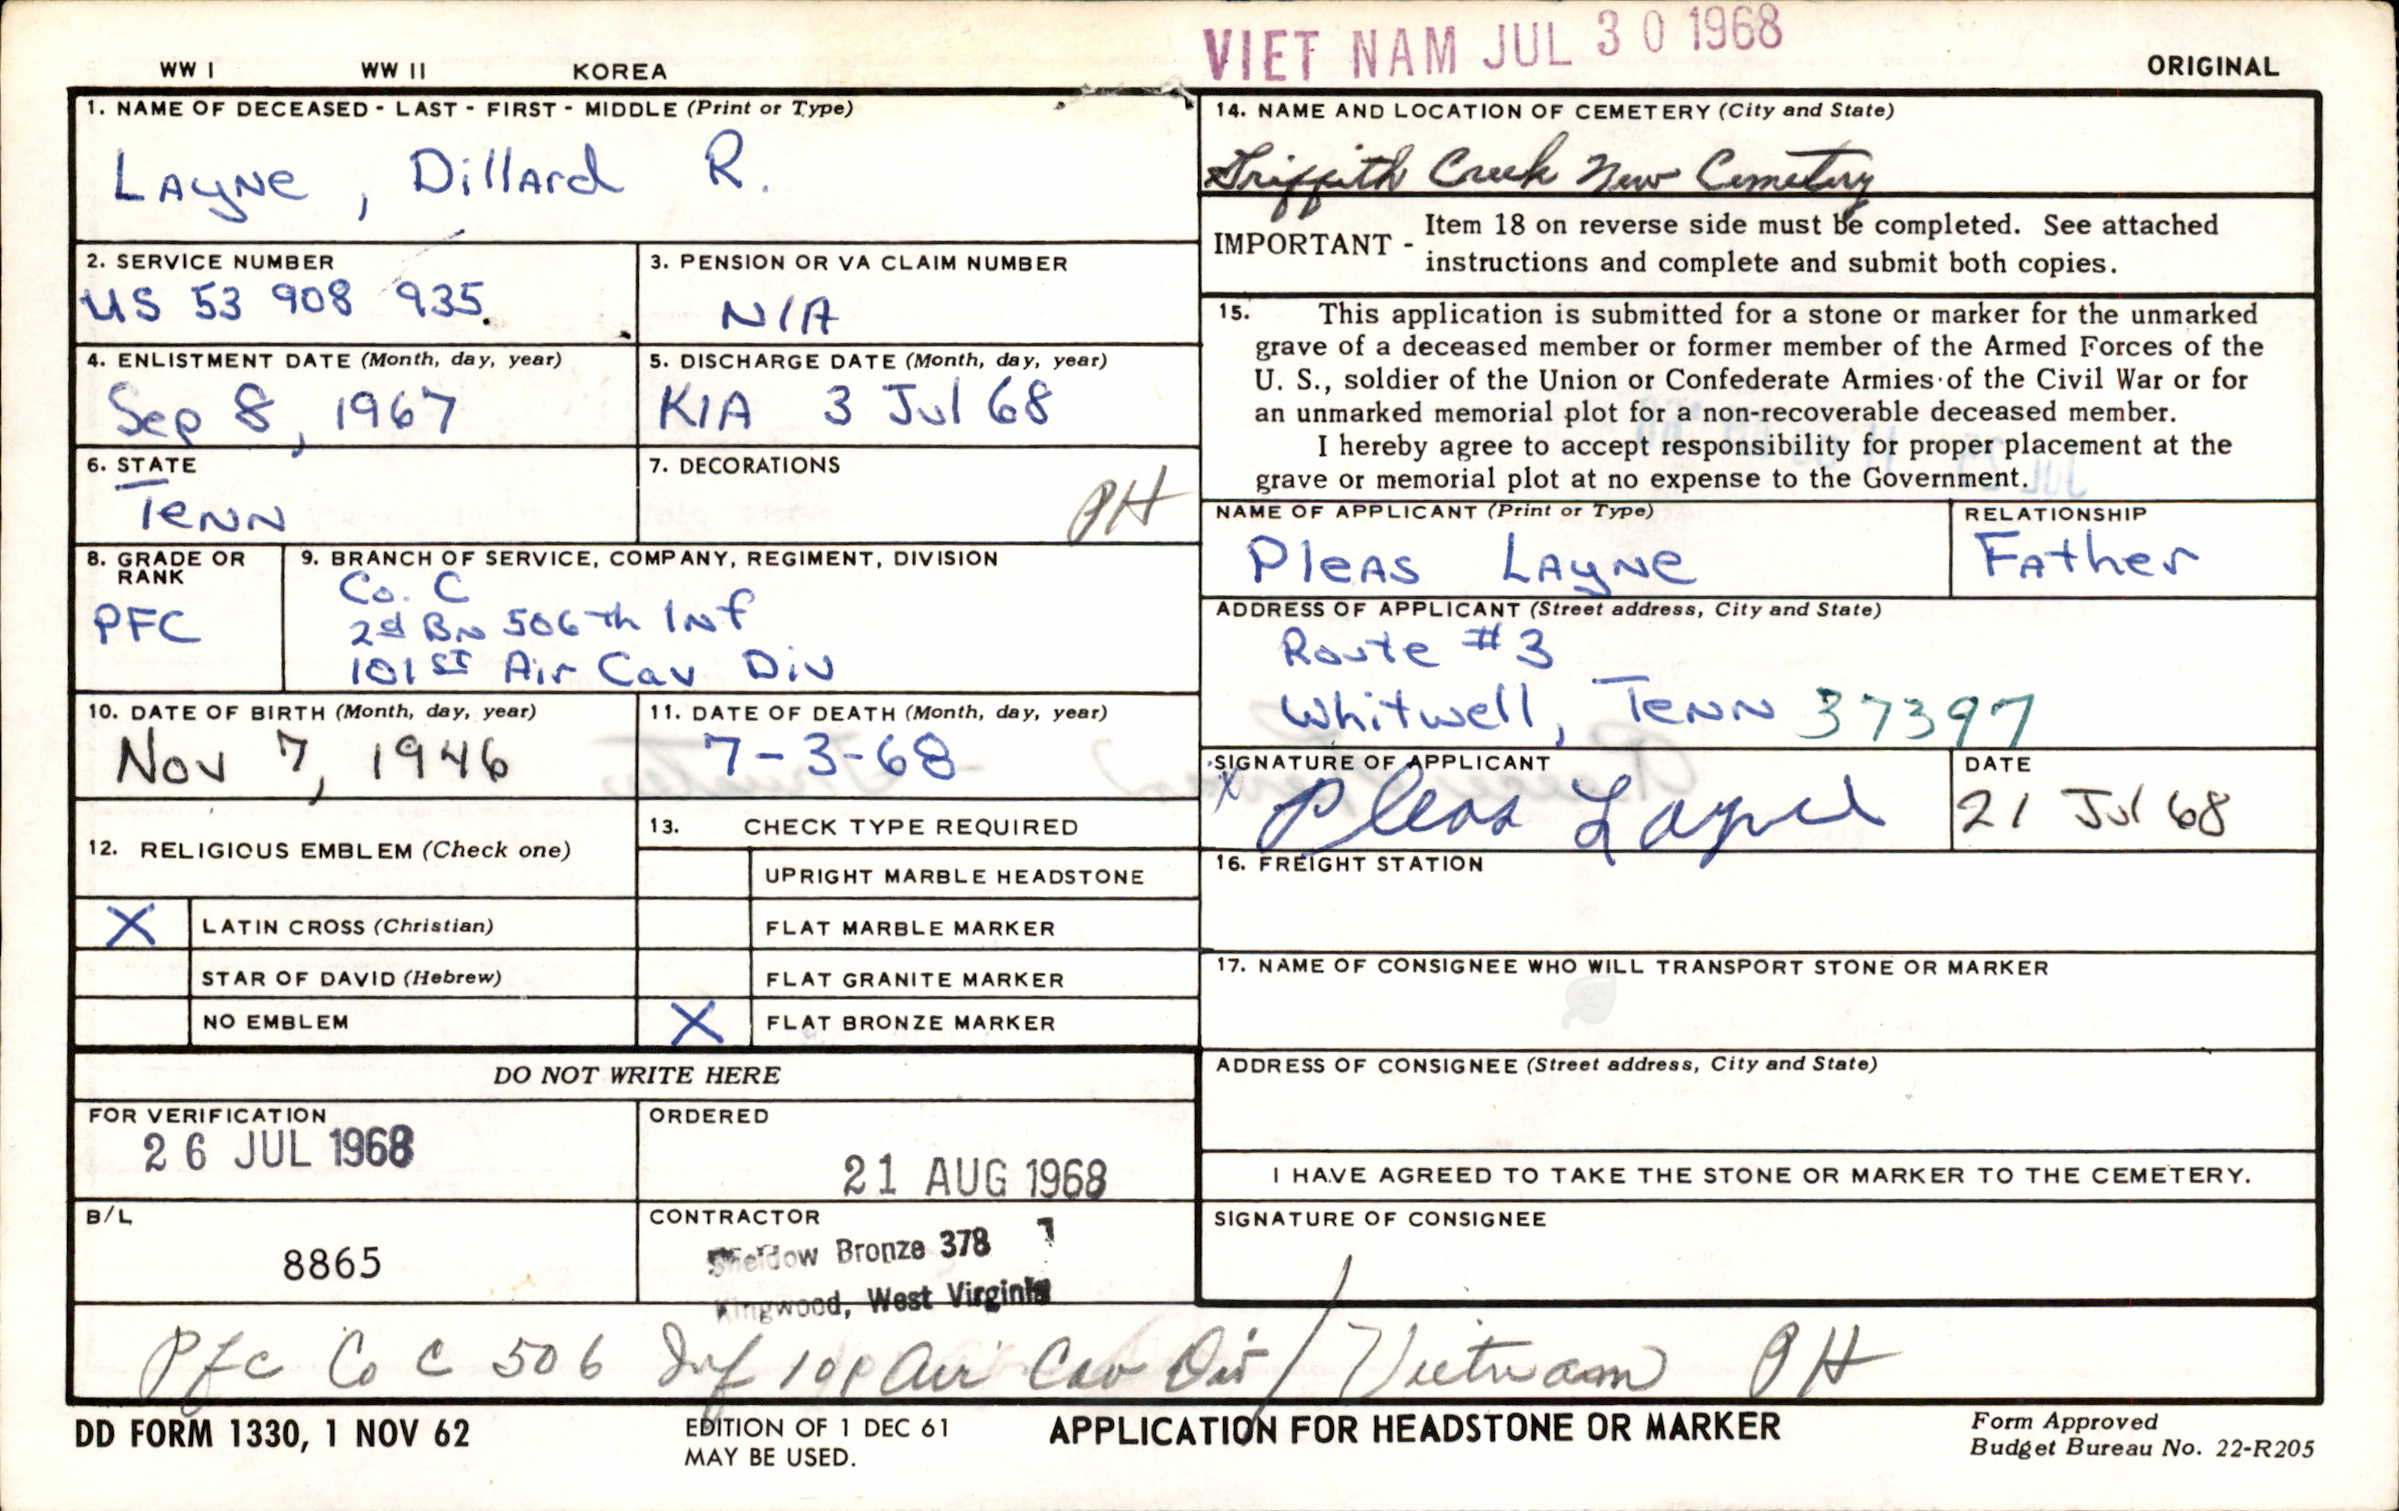 VIET NAM JUL 30 1968
WW I WW II KOREA ORIGINAL
1. NAME OF DECEASED - LAST - FIRST - MIDDLE (Print or Type)
Layne, Dillard R.
2. SERVICE NUMBER
US 53 908 935
3. PENSION OR VA CLAIM NUMBER
N/A
4. ENLISTMENT DATE (Month, day, year)
Sep 8, 1967
5. DISCHARGE DATE (Month, day, year)
KIA 3 Jul 68
6. STATE
Tenn
7. DECORATIONS
PH
8. GRADE OR
RANK
PFC
9. BRANCH OF SERVICE, COMPANY, REGIMENT, DIVISION
Co. C
2d Bn 506th Inf
101st Air Cav Div
10. DATE OF BIRTH (Month, day, year)
Nov 7, 1946
11. DATE OF DEATH (Month, day, year)
7-3-68
12. RELIGIOUS EMBLEM (Check one)
X LATIN CROSS (Christian)
STAR OF DAVID (Hebrew)
NO EMBLEM
13. CHECK TYPE REQUIRED
UPRIGHT MARBLE HEADSTONE
FLAT MARBLE MARKER
FLAT GRANITE MARKER
X FLAT BRONZE MARKER
DO NOT WRITE HERE
FOR VERIFICATION
26 JUL 1968
ORDERED
21 AUG 1968
B/L
8865
CONTRACTOR
Bronze 378 7
Kingwood, West Virginia
14. NAME AND LOCATION OF CEMETERY (City and State)
Griffith Creek New Cemetery
IMPORTANT - Item 18 on reverse side must be completed. See attached
instructions and complete and submit both copies.
15. This application is submitted for a stone or marker for the unmarked
grave of a deceased member or former member of the Armed Forces of the
U. S., soldier of the Union or Confederate Armies of the Civil War or for
an unmarked memorial plot for a non-recoverable deceased member.
I hereby agree to accept responsibility for proper placement at the
grave or memorial plot at no expense to the Government.
NAME OF APPLICANT (Print or Type)
Pleas Layne
RELATIONSHIP
Father
ADDRESS OF APPLICANT (Street address, City and State)
Route #3
Whitwell, Tenn 37397
SIGNATURE OF APPLICANT
X Pleas Layne
DATE
21 Jul 68
16. FREIGHT STATION
17. NAME OF CONSIGNEE WHO WILL TRANSPORT STONE OR MARKER
ADDRESS OF CONSIGNEE (Street address, City and State)
I HAVE AGREED TO TAKE THE STONE OR MARKER TO THE CEMETERY.
SIGNATURE OF CONSIGNEE
Pfc Co C 506 Inf 101 Air Cav Div / Vietnam PH
DD FORM 1330, 1 NOV 62
EDITION OF 1 DEC 61
MAY BE USED.
APPLICATION FOR HEADSTONE OR MARKER
Form Approved
Budget Bureau No. 22-R205